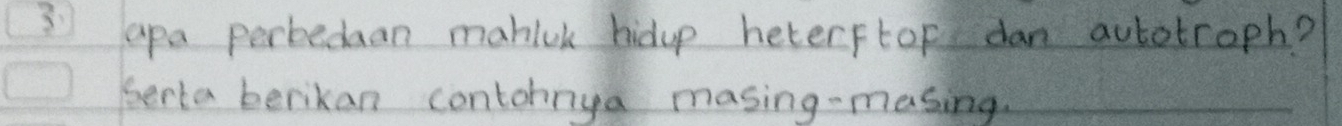 3. apa perbedaan mahluk hidup heterftop dan autotroph?
serta berikan contohnya masing-masing.